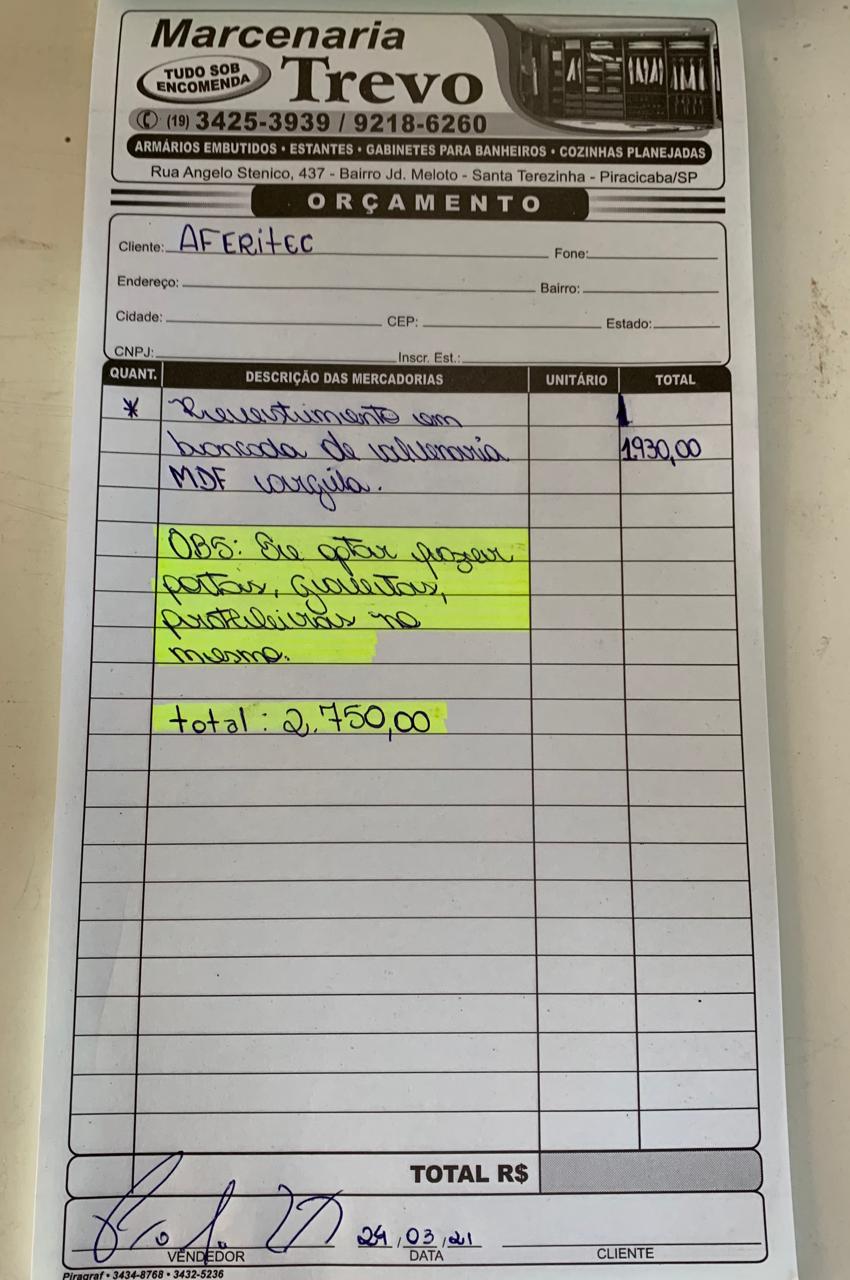 Marcenaria
TUDO SOB
ENCOMENDA
Trevo
(19) 3425-3939 / 9218-6260
ARMÁRIOS EMBUTIDOS • ESTANTES • GABINETES PARA BANHEIROS • COZINHAS PLANEJADAS
Rua Angelo Stenico, 437 - Bairro Jd. Meloto - Santa Terezinha - Piracicaba/SP
ORÇAMENTO
Cliente: AFERitEC Fone:
Endereço: Bairro:
Cidade: CEP: Estado:
CNPJ: Inscr. Est.:
QUANT. DESCRIÇÃO DAS MERCADORIAS UNITÁRIO TOTAL
* Revestimento em
bancada de alvenaria 1930,00
MDF argila.
OBS: Se optar fazer
portas, gavetas,
prateleiras no
mesmo.
total: 2.750,00
TOTAL R$
24,03,21
VENDEDOR DATA CLIENTE
Piragraf • 3434-8768 • 3432-5236